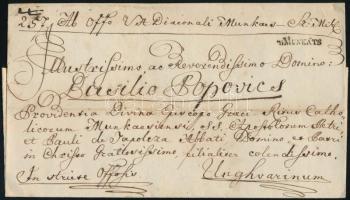 257. Ab Offo V. A. Diaconali Munkacs
Illustrissimo ac Reverendissimo Domino
Basilio Popovics
Providentia Divina Episcopo Graeci Ritus Catho
licorum Munkacsiensi, SS. Apostolorum Petri
et Pauli de Tapolcza Abbati Domino et Patri
in Christo Gratiosissimo, filialiter colendissimo.
Unghvarinum